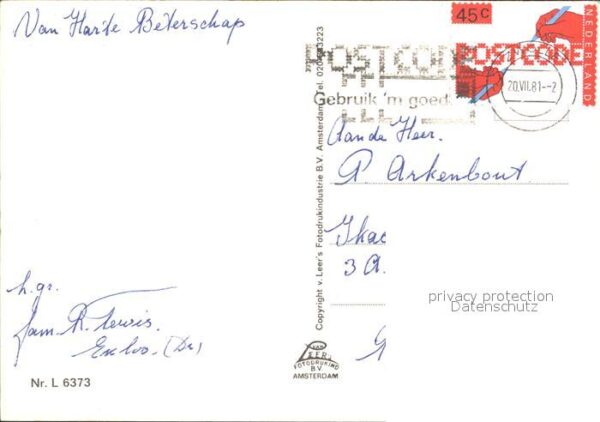 Van Harte Beterschap
45c
NEDERLAND
POSTCODE
POSTCODE
Gebruik 'm goed.
20.VII.81--2
Aan de Heer.
P. Arkenbout
3 A.
privacy protection
Datenschutz
h. gr.
fam. R.
Nr. L 6373
Copyright v. Leer's Fotodrukindustrie B.V. Amsterdam Tel. 020
VAN
LEER
FOTODRUKIND
B.V
AMSTERDAM